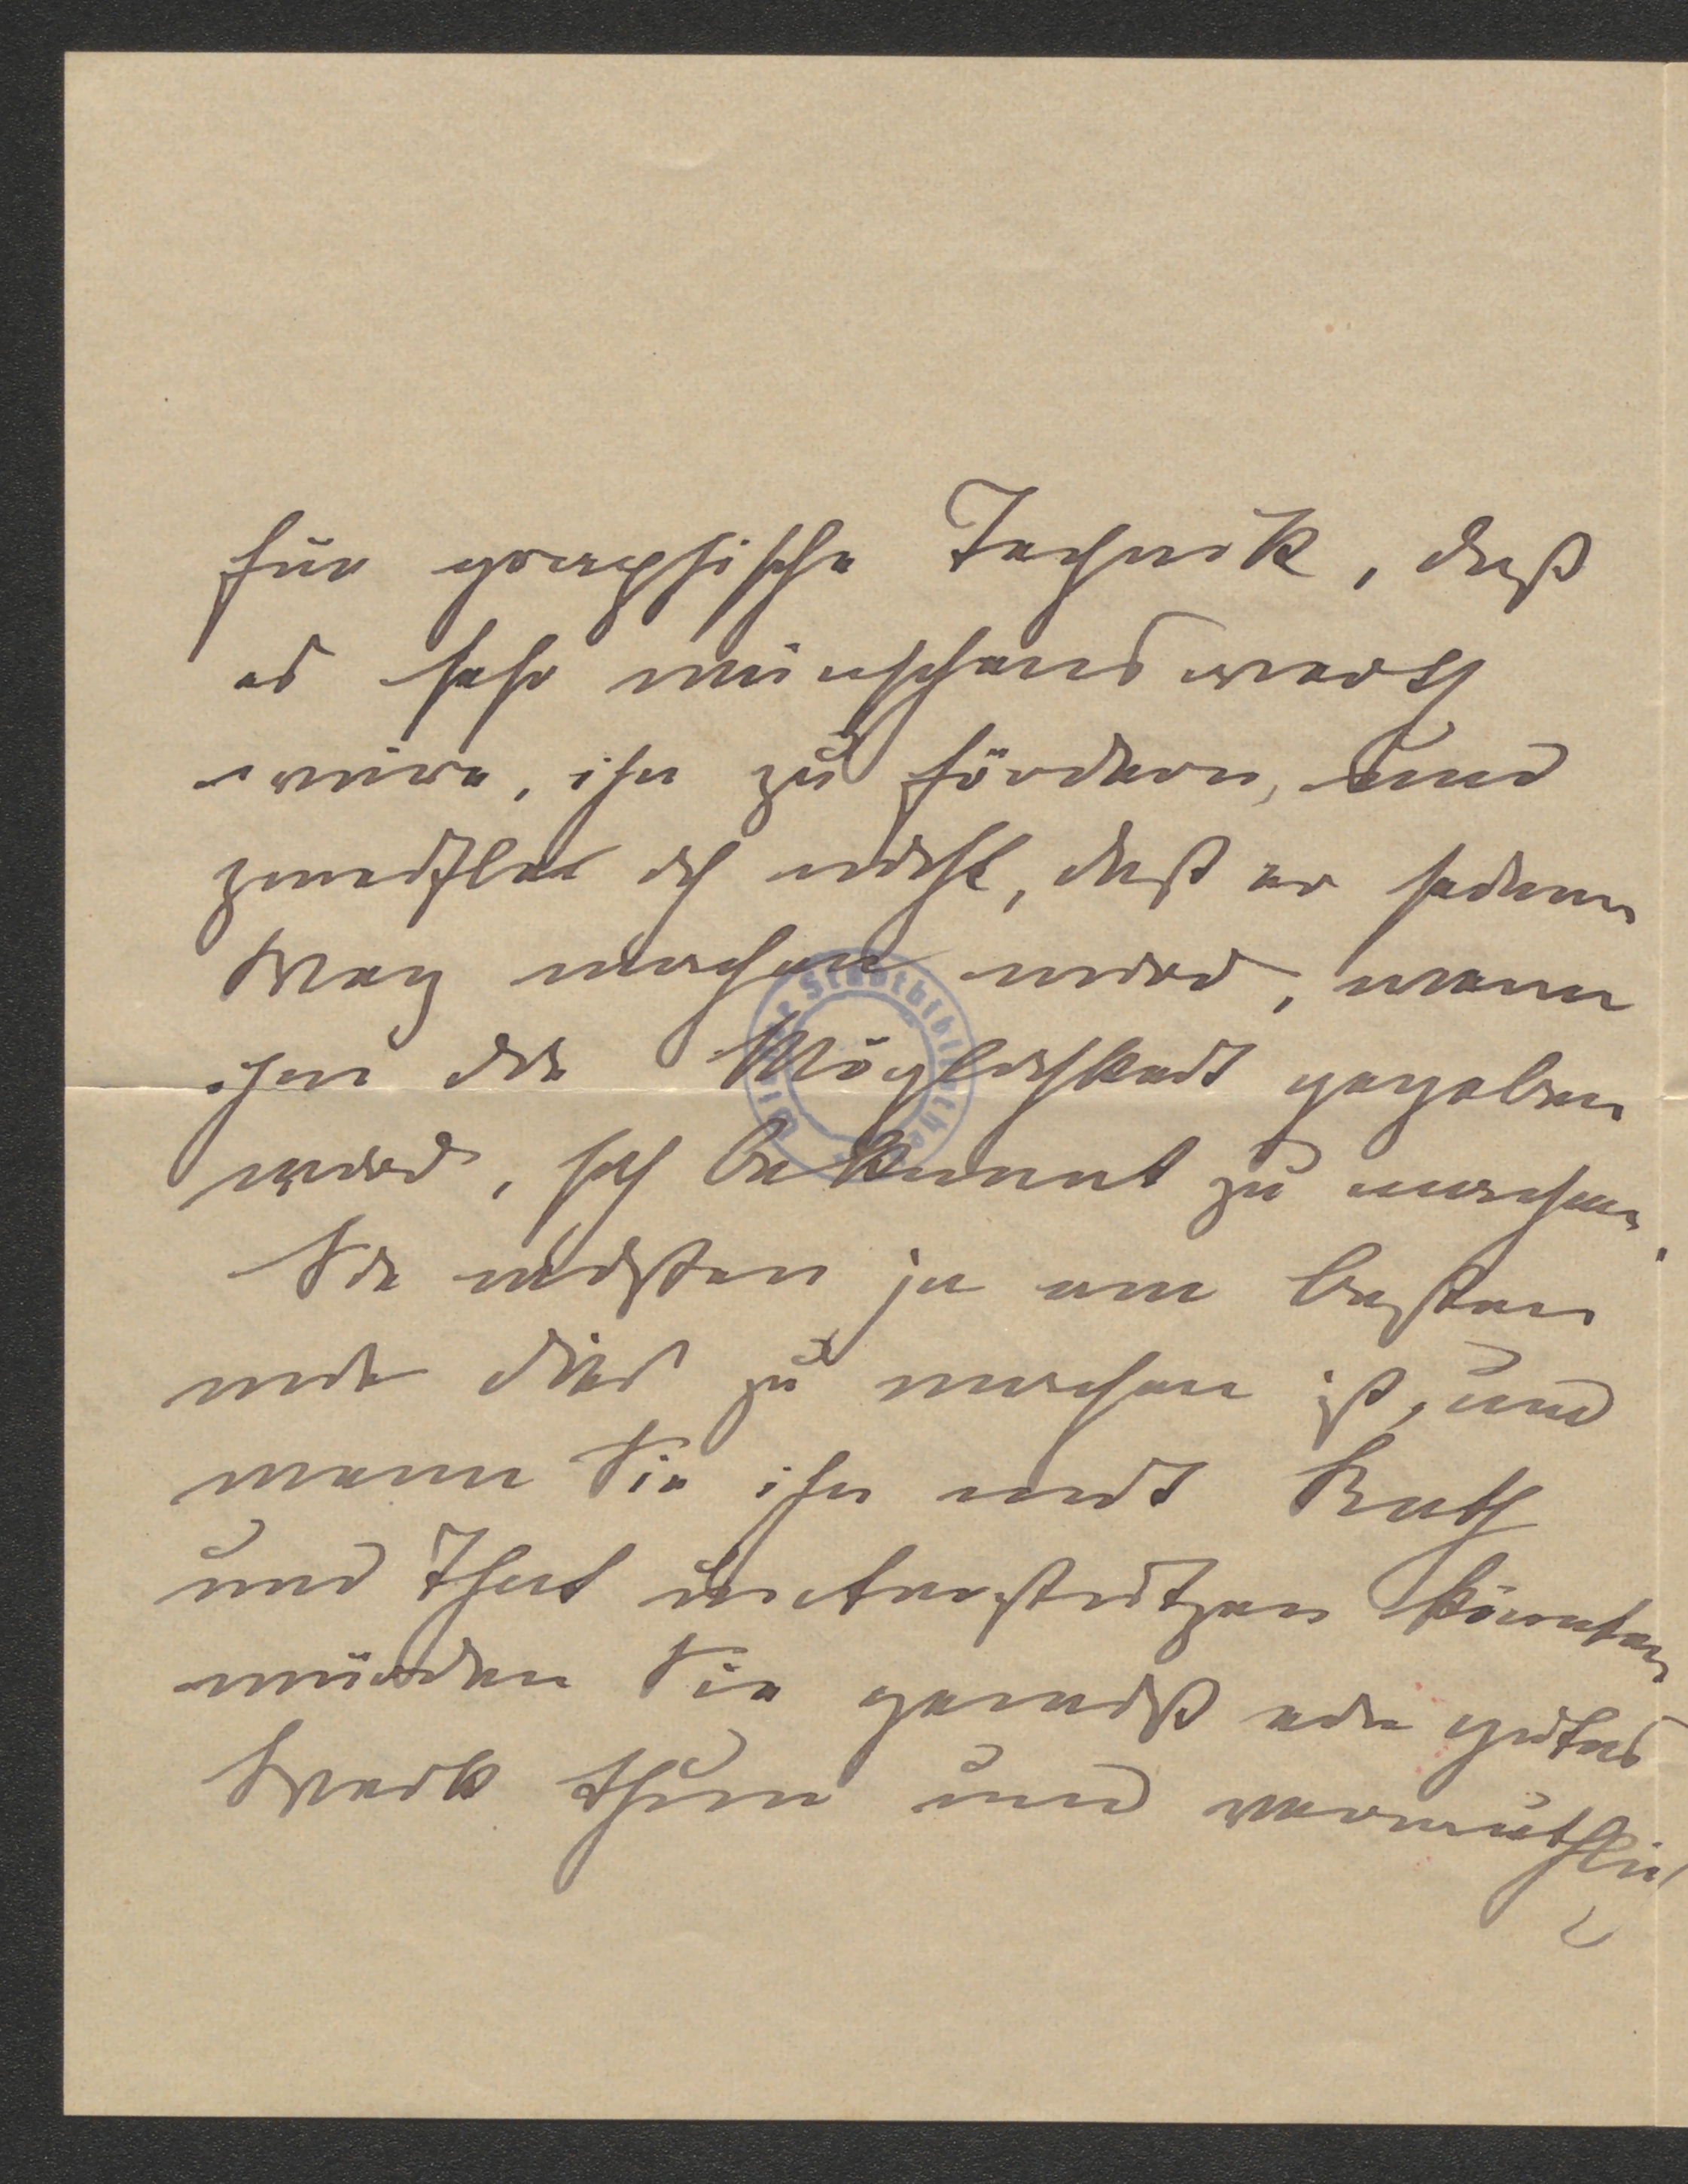 für graphische Technik, daß
es sehr wünschenswerth
wäre, ihn zu fördern, und
zweifle ich nicht, daß er seinen
Weg machen wird, wenn
ihm die Möglichkeit gegeben
wird, sich bekannt zu machen.
Sie wissen ja am besten
wie dies zu machen ist, und
wenn Sie ihn mit Rath
und That unterstützen könnten
würden Sie gewiß ein gutes
Werk thun und vermuthlich